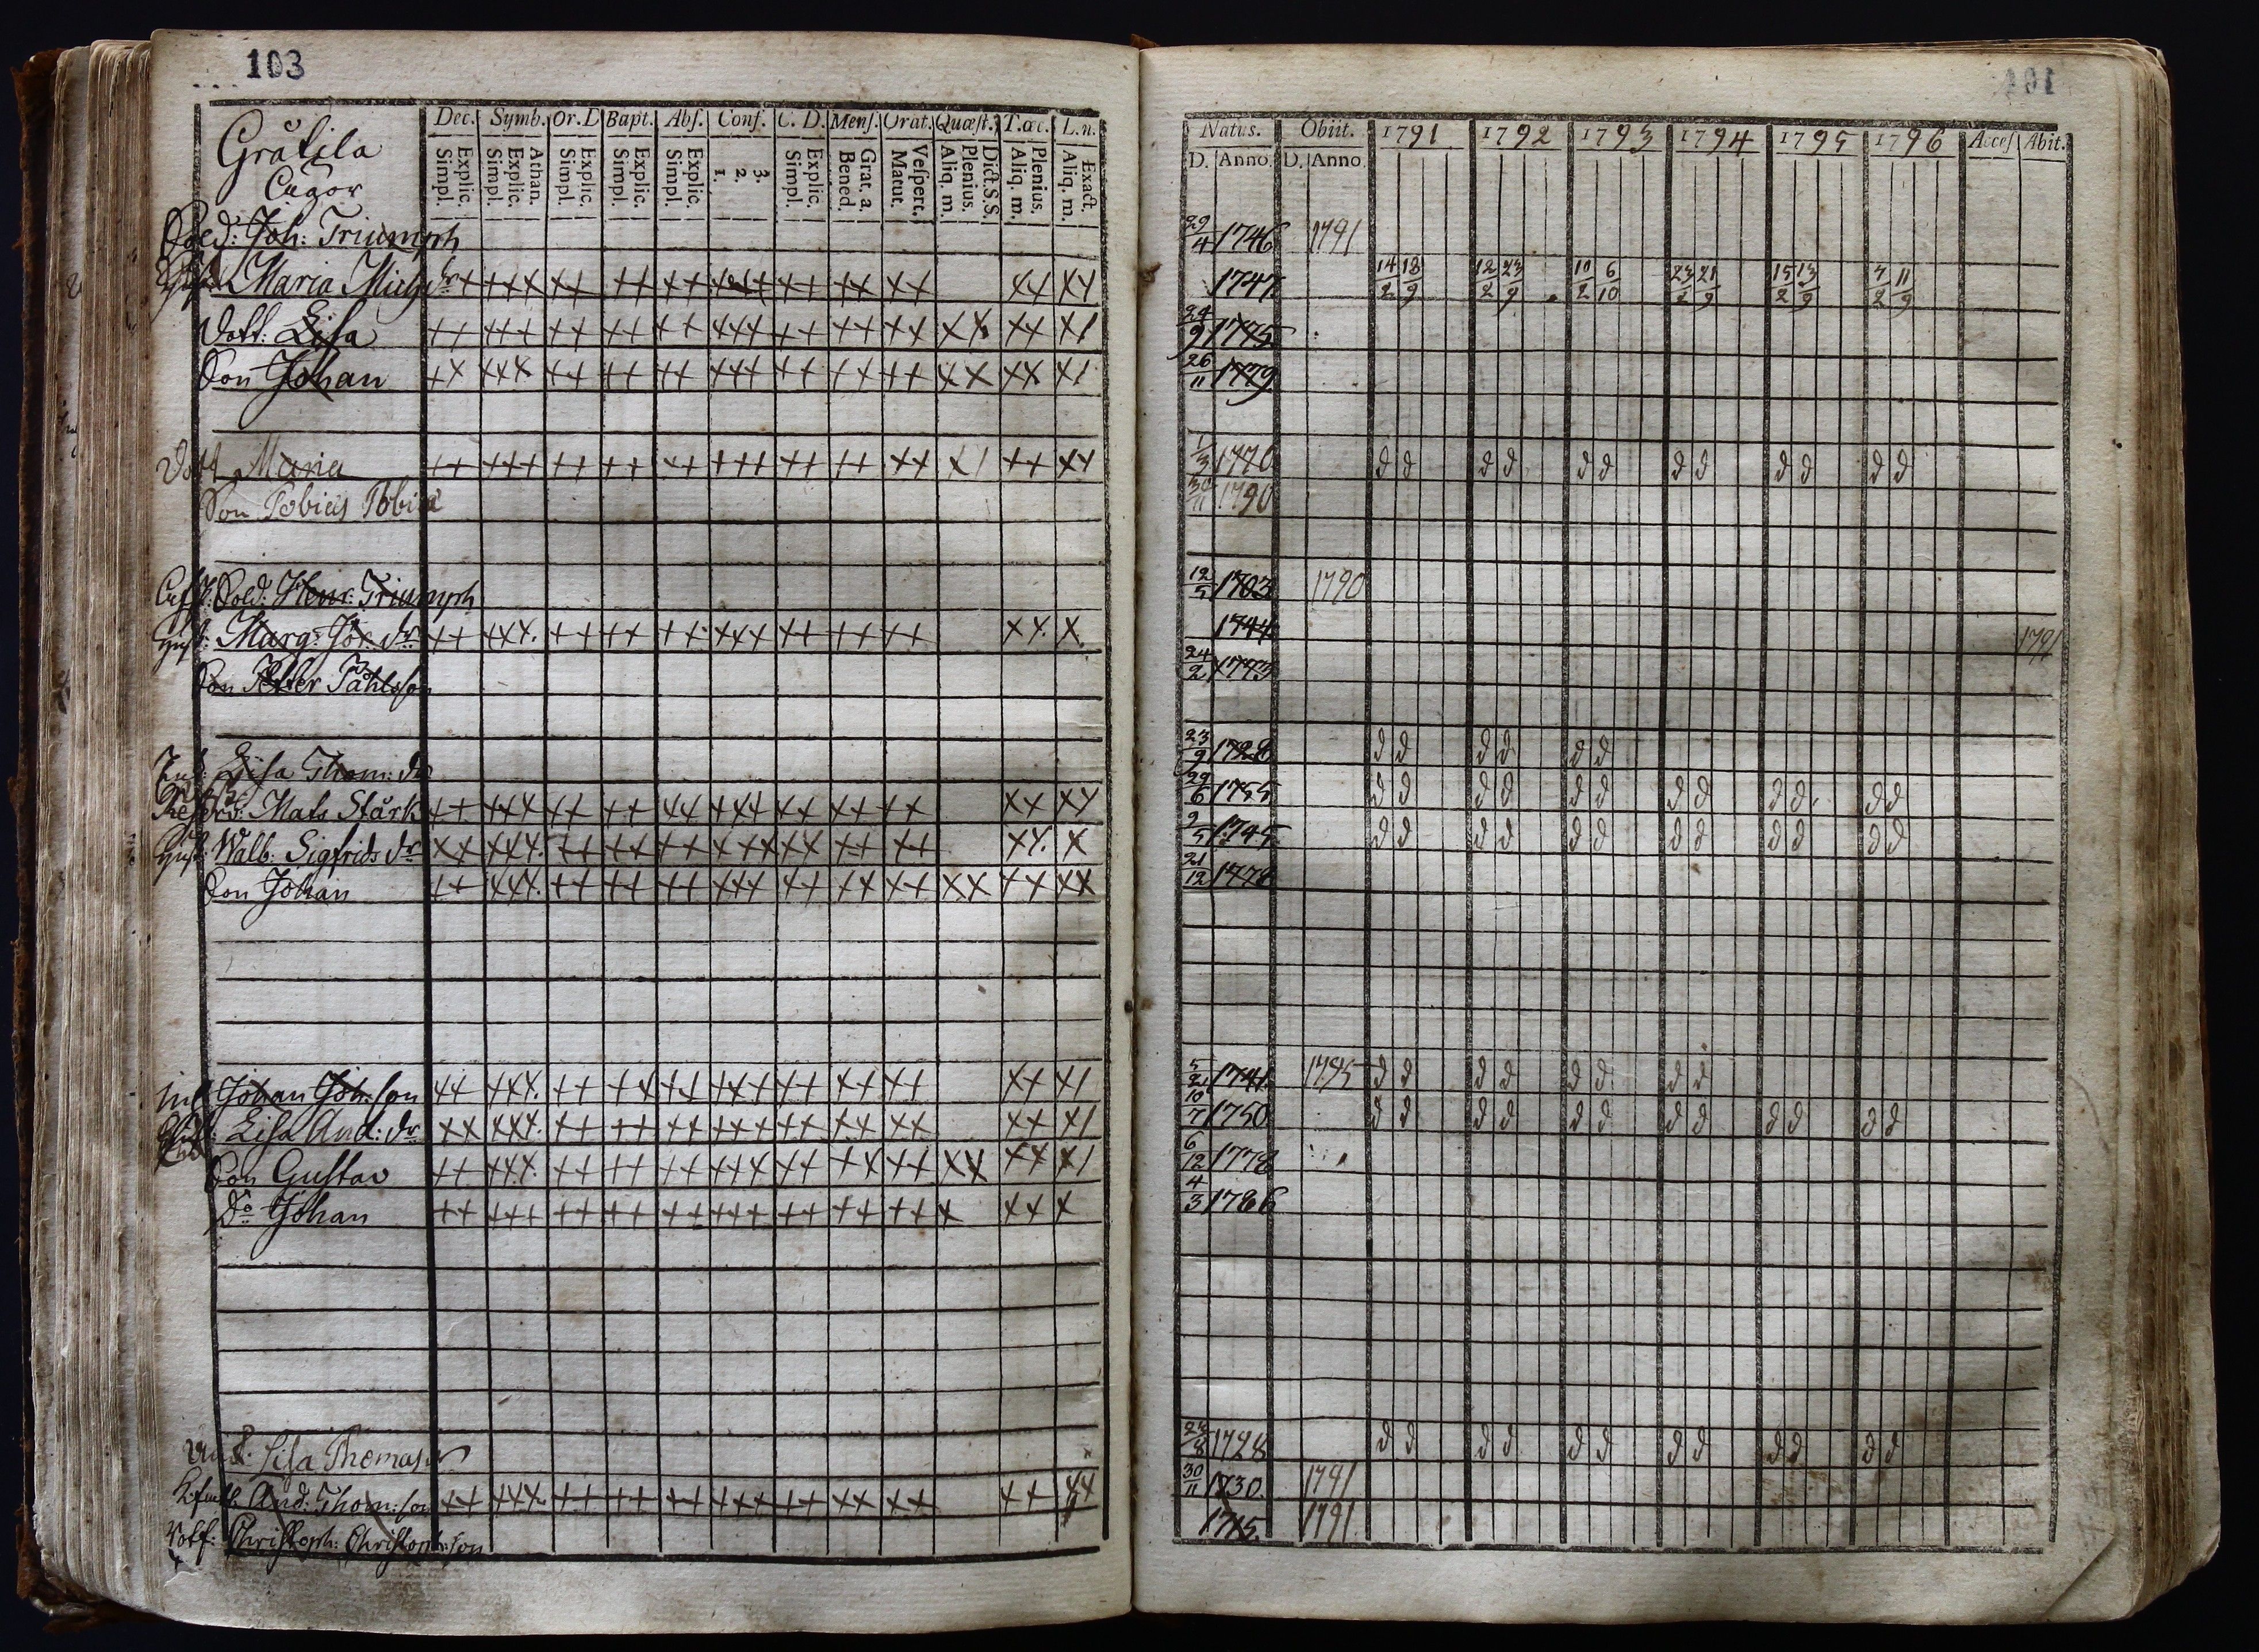 103
Dec. Symb. Or. D Bapt. Abs. Conf. C. D. Menf. Orat. Quæst. T. œc. L. n.
Explic. Simpl. Athan. Explic. Simpl. Explic. Simpl. Explic. Simpl. Explic. Simpl. 3. 2. 1. Explic. Simpl. Grat. a. Bened. Vespert. Matut. Dict. S.S. Plenius. Aliq. m. Plenius. Aliq. m. Exact. Aliq. m.
Gråtila
Sold: Joh: Triumph
Maria Mich dr ++ +++ ++ ++ ++ ++ ++ ++ ++ ++
Dott: Lisa ++ +++ ++ ++ ++ +++ ++ ++ ++ ++ ++ +1
Son Johan ++ +++ ++ ++ ++ +++ ++ ++ ++ ++ ++ +1
Dott Maria ++ +++ ++ ++ ++ +++ ++ ++ ++ +1 ++ ++
Son Tobias
Sold: Henr: Triumph
Hust: Marg: Jör: dr ++ +++. ++ ++ ++ +++ ++ ++ ++ ++. +
Son Petter Påhlsson
Lisa Thom: dr
Mats Stark ++ +++ ++ ++ ++ +++ ++ ++ ++ ++ ++
Hust: Walb: Sigfrids dr ++ +++. ++ ++ ++ +++ ++ ++ ++ ++. +
Son Johan ++ +++. ++ ++ ++ +++ ++ ++ ++ ++ ++ ++
Inh Johan Joh: son ++ +++. ++ ++ ++ +++ ++ ++ ++ ++ +1
Lisa And: dr ++ +++. ++ ++ ++ +++ ++ ++ ++ ++ +1
Son Gustav ++ +++. ++ ++ ++ +++ ++ ++ ++ ++ ++ +1
Do Johan ++ +++ ++ ++ ++ +++ ++ ++ ++ + ++ +
Lisa Thomas dr
And: Thom: son ++ +++. ++ ++ ++ +++ ++ ++ ++ ++ ++
Christoph: Christoph: son
Natus. Obiit. 1791 1792 1793 1794 1795 1796 Acces Abit.
D. Anno. D. Anno
29/4 1746 1791
1747 14/2 18/9 12/2 23/9 10/2 6/10 21/9 15/2 13/9 11/9
24/9 1775
26/11 1779
1/3 1770 d d d d d d d d d d d d
30/11 1790
12/5 1703 1790
1744 1791
24/2 1773
23/9 1728 d d d d d d
29/6 1755 d d d d d d d d d d d d
9/5 1745 d d d d d d d d d d d d
21/12 1778
1741 1795 d d d d d d d d
10/7 1750 d d d d d d d d d d d d
6/12 1778
4/3 1786
1728 d d d d d d d d d d d d
30/11 1730. 1791
1715 1791